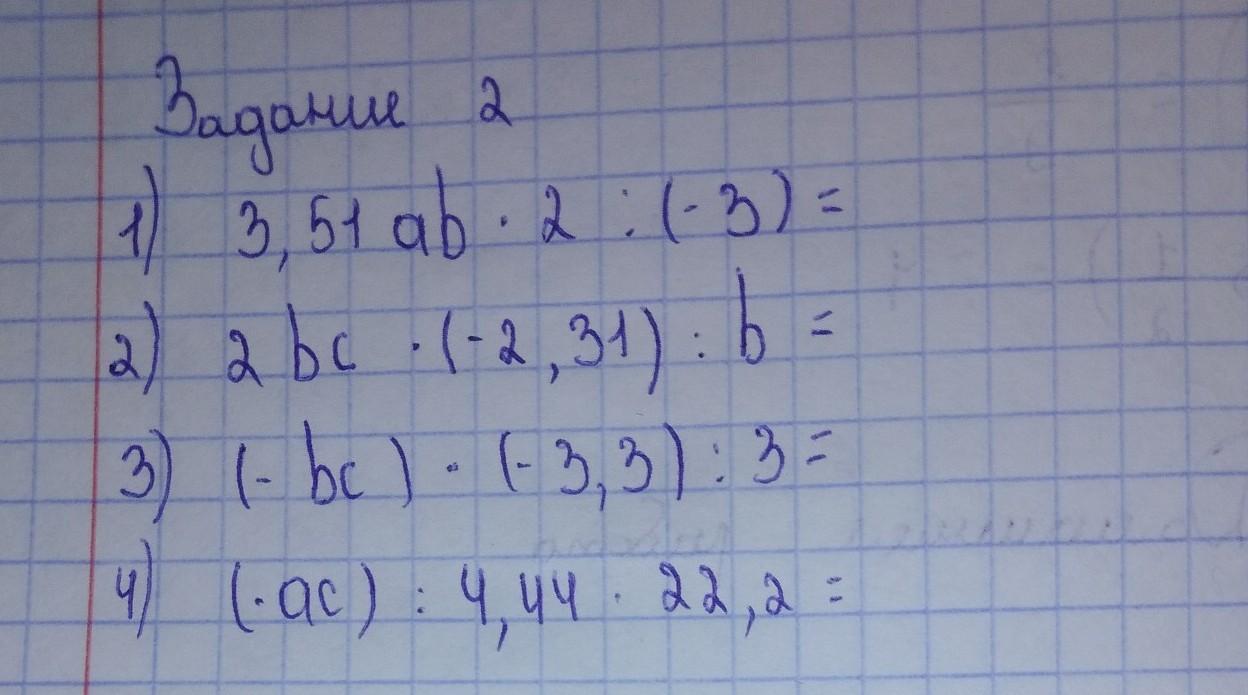 Задание 2
1) 3,51 ab · 2 : (-3) =
2) 2 bc · (-2,31) : b =
3) (- bc) · (-3,3) : 3 =
4) (-ac) : 4,44 · 22,2 =